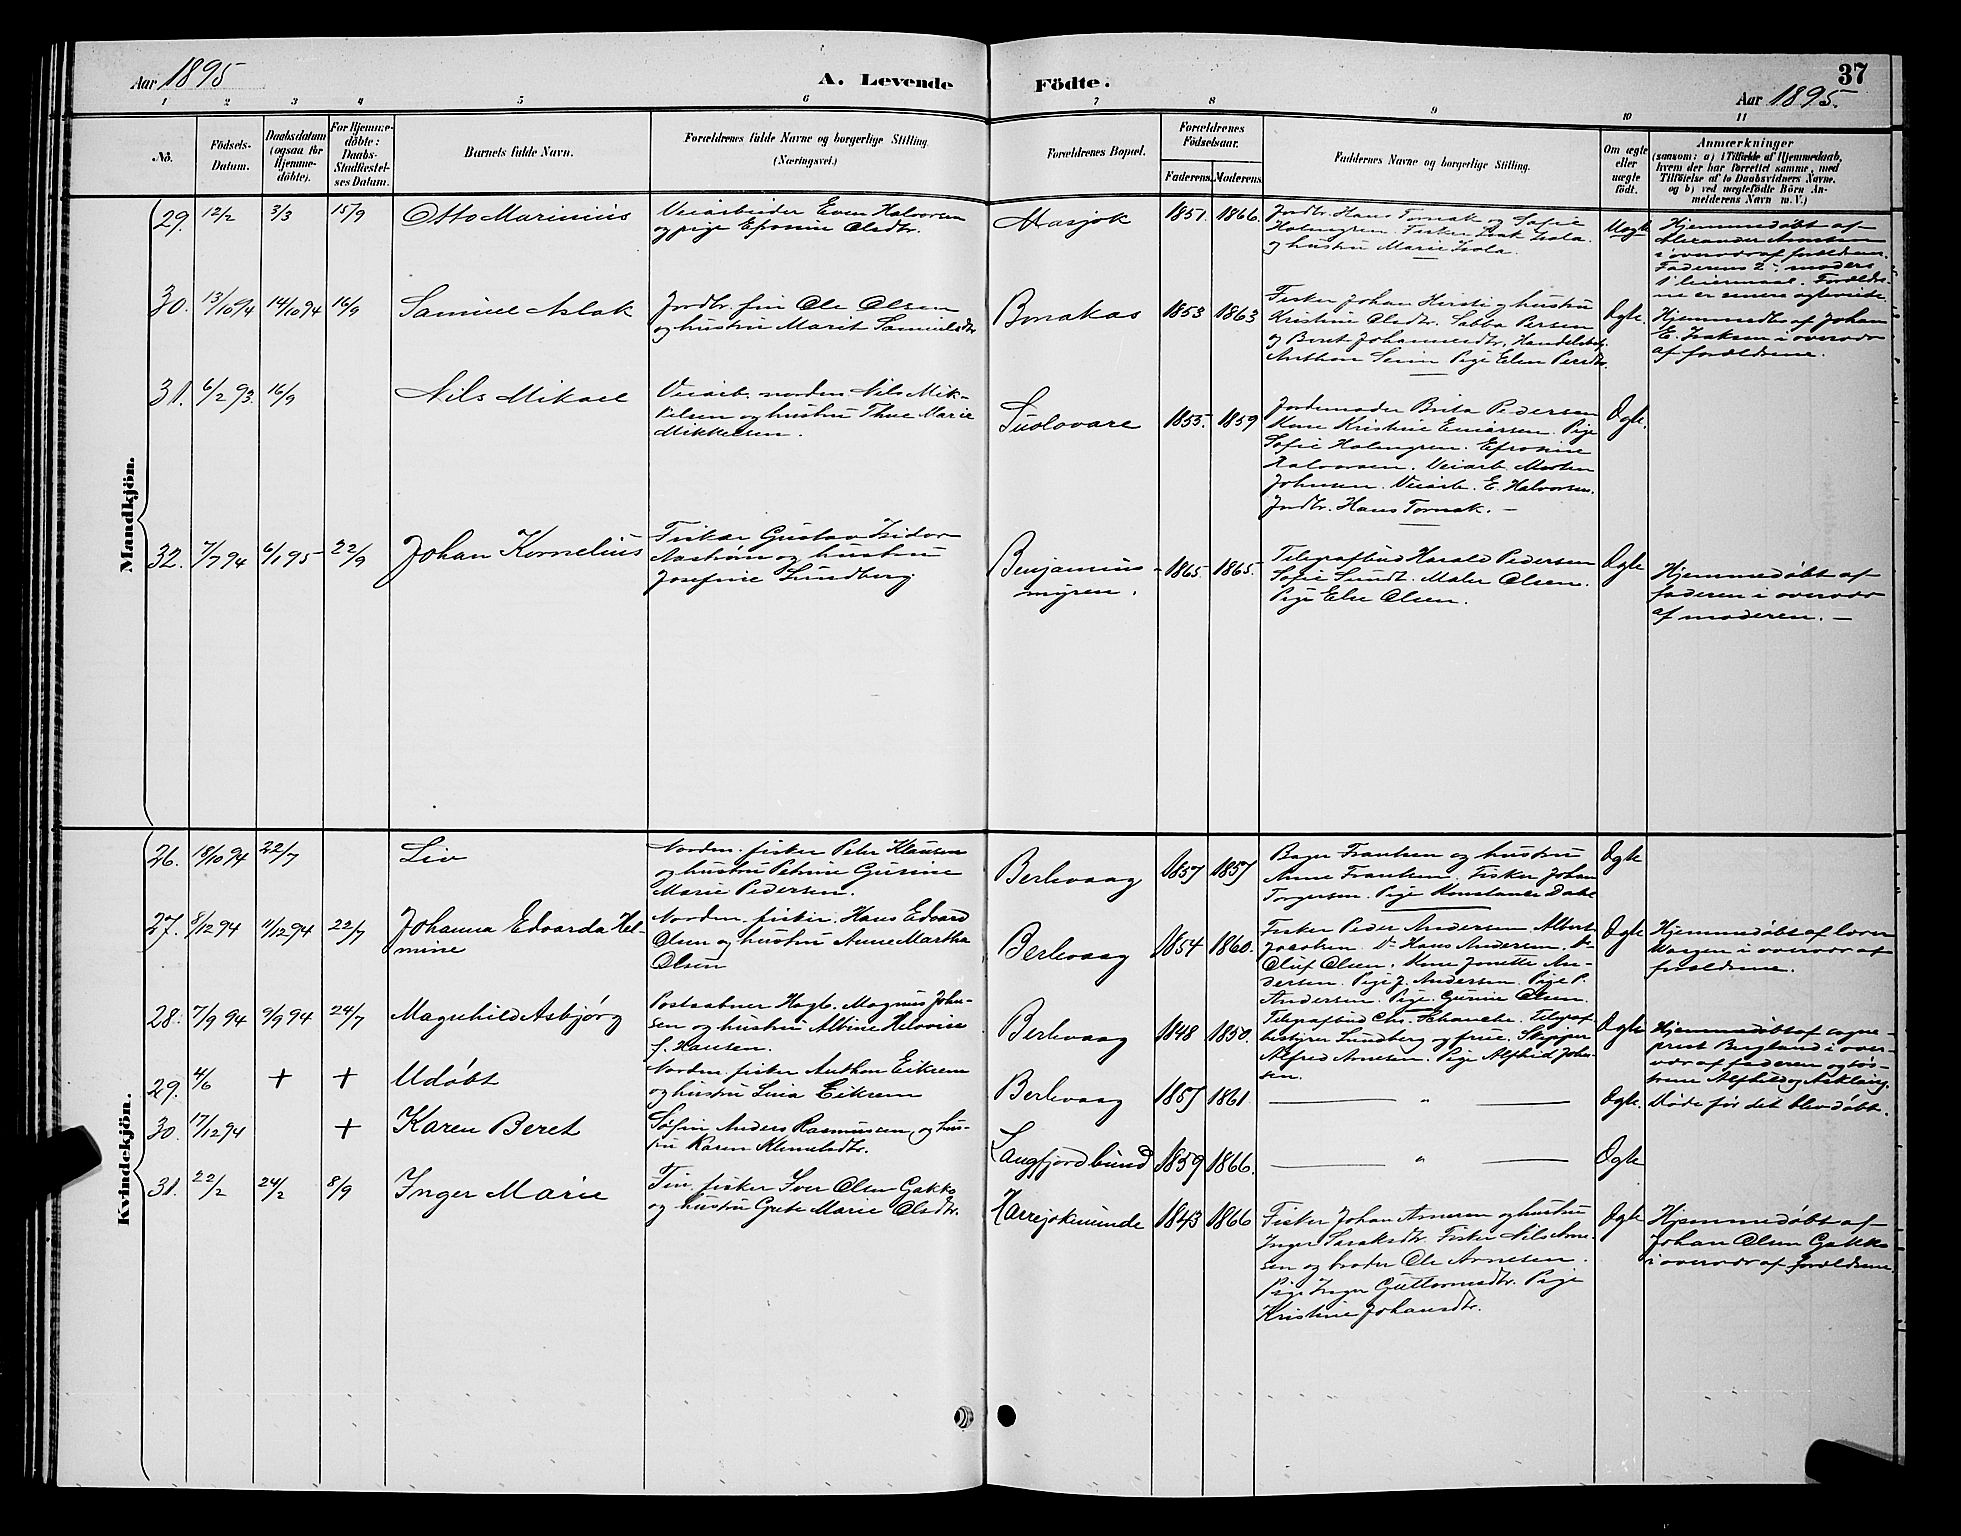 Aar 1895
A. Levende
Födte.
37
Aar 1895.
1 2 3 4 5 6 7 8 9 10 11
No.
Födsels-Datum.
Daabsdatum (ogsaa for Hjemme-döbte).
For Hjemme-döbte: Daabs-Stadfæstel-ses Datum.
Barnets fulde Navn.
Forældrenes fulde Navne og borgerlige Stilling.
(Næringsvei.)
Forældrenes Bopæl.
Forældrenes Födselsaar.
Faderens. Moderens.
Faddernes Navne og borgerlige Stilling.
Om ægte eller uægte födt.
Anmærkninger
(saasom: a) i Tilfælde af Hjemmedaab,
hvem der har forrettet samme, med
Tilföielse af to Daabsvidners Navne.
og b) ved uægtefödte Börn An-
melderens Navn m. V.)
Mandkjön.
29. 12/2 3/3 15/9 Otto Marinius
Veiarbeider Even Halvorsen
og pige Efrosine Olsdtr.
Masjok 1851. 1866.
Jordbr. Hans Tornak og Sofie
Holmgren. Fisker Isak Isola
og hustru Marie Isola
Uægte
Hjemmedøbt af
Alexander
i overvær af forældrene.
Faderens 2., moders
1 leiermaal.
30. 13/10 94 14/10 94 16/9 Samuel Aslak
Jordbr. fin Ole Olsen
og hustru Marit Samuelsdtr
Bonakas 1853 1863
Fisker Johan og hustru
Kristine Olsdtr. Sabba Persen
og Beret Johannesdtr. Handelsbetj.
Anthon Pige Elen Persdtr.
Ægte.
Hjemmedbt af Johan
E. Isaksen i overvær
af forældrene.
31. 6/2 93. 16/9 Nils Mikael
Veiarb. nordm. Nils Mik-
kelsen og hustru Thue Marie
Mikkelsen.
Suolovare 1855. 1859
Jordemoder Brita Pedersen
Kone Kristine Einarsen. Pige
Sofie Holmgren. Efrosine
Halvorsen. Veiarb. Morten
Johnsen. Veiarb. E. Halvorsen.
Jordbr. Hans Tornak. —
Ægte.
32. 7/7 94 6/1 95 22/9 Johan Kornelius
Fisker Gustav Isidor
Aastrøm og hustru
Josefine Lundberg
Benjamins-
myren. 1865. 1865.
Telegrafbud Harald Pedersen
Sofie Lundt. Maler Olsen.
Pige Else Olsen.
Ægte
Hjemmedøbt af
faderen i overvær
af moderen. —
Kvindekjön.
26. 18/10 94 22/7 Liv
Nordm. fisker Peter Klausen
og hustru Petrine Gurine
Marie Pedersen.
Berlevaag 1857 1857
Bager Frantsen og hustru
Anne Frantsen. Fisker Johan
Torgersen. Pige Konstanse Dahl
Ægte
27. 8/12 94 11/12 94 22/7 Johanna Edvarda Hel-
mine
Nordm. fisker. Hans Edvard
Olsen og hustru Anne Martha
Olsen
Berlevaag 1854 1860.
Fisker Peder Andersen Albert
Jacobsen. Do Hans Andersen. Do
Oluf Olsen. Kone Jonette An-
dersen. Pige J. Andersen. Pige P.
Andersen. Pige. Gurine Olsen.
Ægte
Hjemmedøbt af lærer
i overvær af
forældrene.
28. 7/9 94 9/9 94 24/7 Magnhild Asbjørg
Postaabner Hagb. Magnus Johan-
sen og hustru Albine Helvise
f. Hansen.
Berlevaag 1848 1850.
Telegrafbud Chr. Schanche. Telegraf
bestyrer Lundberg og frue. Skipper
Alfred Arnesen. Pige Alfhild Johan-
sen.
Ægte
Hjemmedøbt af sogne-
prest Berglund i over-
vær af faderen og søs-
trene Alfhild og Aslaug.
29. 4/6 + + Udøbt
Nordm. fisker Anthon Eiksem
og hustru Lina Eiksem
Berlevaag 1857 1861. — " —
Ægte.
Døde før det blev døbt.
30. 17/12 94 + Karen Beret
Søfin Anders Rasmussen, og hus-
tru Karen Klemetsdtr.
Langfjordbund 1859 1866. — " —
Ægte
31. 22/2 24/2 8/9 Inger Marie
Fin. fisker Iver Olsen Gakko
og hustru Grete Marie Olsdtr.
Harrejokmunde 1843 1866
Fisker Johan Arnesen og hustru
Inger Isaksdtr. Fisker Nils Arne-
sen og broder Ole Arnesen.
Pige Inger Guttormsdtr. Pige
Kristine Johansdtr.
Ægte
Hjemmedøbt af
Johan Olsen Gakko
i overvær af forældrene.